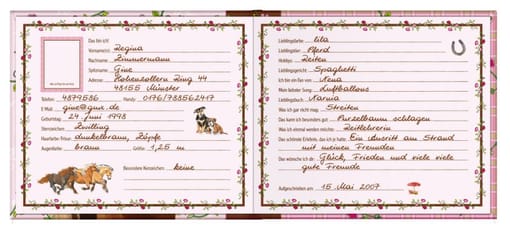 Das bin ich!
Vorname(n): Regina
Nachname: Zimmermann
Spitzname: Gine
Adresse: Hohenzollern Ring 44
48155 Münster
Telefon: 4879586 Handy: 0176/788562417
E-Mail: gine@gmx.de
Geburtstag: 24. Juni 1998
Sternzeichen: Zwilling
Haarfarbe/Frisur: dunkelbraun, Zöpfe
Augenfarbe: braun Größe: 1,25 m
Besondere Kennzeichen: keine
Lieblingsfarbe: lila
Lieblingstier: Pferd
Hobbys: Reiten
Lieblingsgericht: Spaghetti
Ich bin ein Fan von: Nena
Mein liebster Song: Luftballons
Lieblingsbuch: Narnia
Was ich gar nicht mag: Streiten
Das kann ich besonders gut: Purzelbaum schlagen
Was ich einmal werden möchte: Reitlehrerin
Das schönste Erlebnis, das ich hatte: Ein Ausritt am Strand
mit meinen Freunden
Das wünsche ich dir: Glück, Frieden und viele viele
gute Freunde
Aufgeschrieben am: 15. Mai 2007